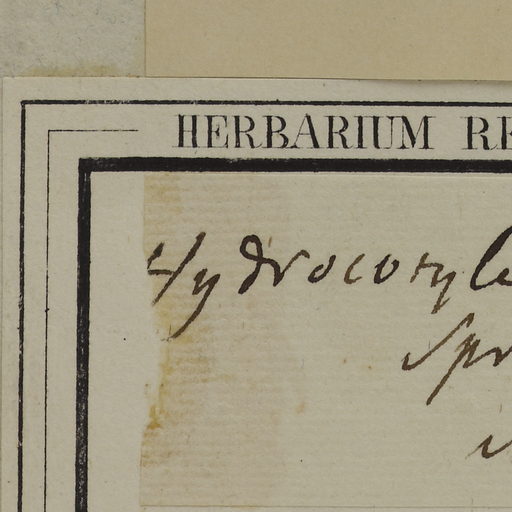 HERBARIUM RE
Hydrocotyle
Spr